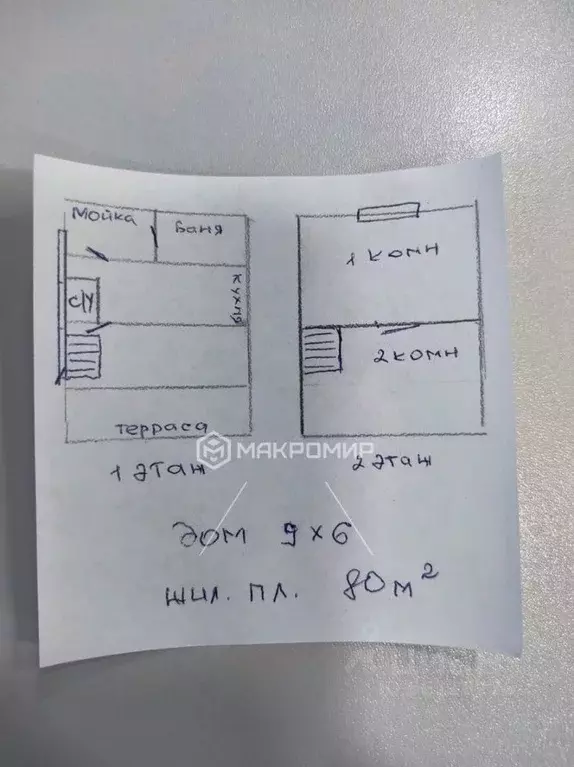 Мойка
Баня
1 комн
кухня
с/у
2 комн
терраса
МАКРОМИР
1 этаж
2 этаж
дом 9 х 6
жил. пл. 80 м²